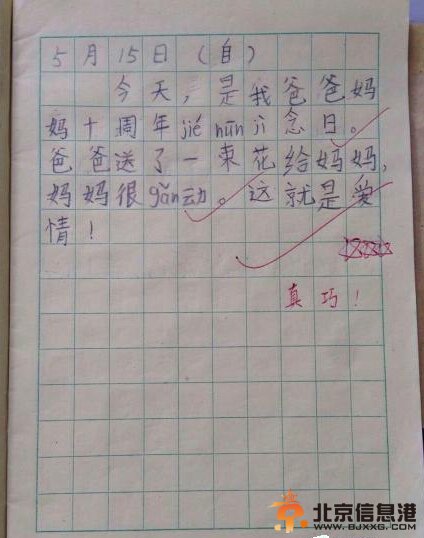 5月15日（自）
今天，是我爸爸妈
妈十周年jié hūn jì念日。
爸爸送了一束花给妈妈，
妈妈很gǎn动。这就是爱
情！
真巧！
北京信息港
WWW.BJXXG.COM